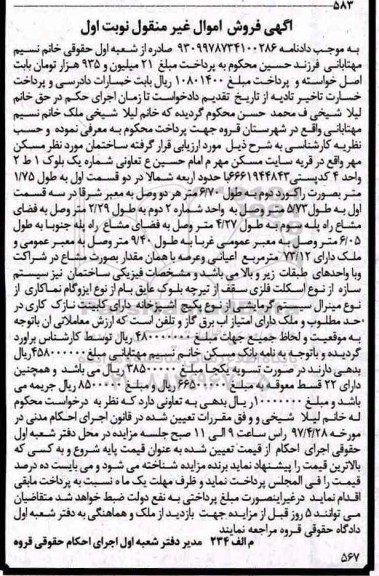 ۵۸۳
آگهی فروش اموال غیر منقول نوبت اول
به موجب دادنامه ۹۳۰۹۹۷۸۷۳۴۱۰۰۲۸۶ صادره از شعبه اول حقوقی خانم نسیم
مهتابانی فرزند حسین محکوم به پرداخت مبلغ ۲۱ میلیون و ۹۳۵ هزار تومان بابت
اصل خواسته و پرداخت مبلغ ۱۰۸۰۱۴۰۰ ریال بابت خسارات دادرسی و پرداخت
خسارت تاخیر تادیه از تاریخ تقدیم دادخواست تا زمان اجرای حکم در حق خانم
لیلا شیخی ف محمد حسن محکوم گردیده که خانم لیلا شیخی ملک خانم نسیم
مهتابانی واقع در شهرستان قروه جهت پرداخت محکوم به معرفی نموده و حسب
نظریه کارشناسی به شرح ذیل مورد ارزیابی قرار گرفته ساختمان مورد نظر مسکن
مهر واقع در قریه سایت مسکن مهر م امام حسین ع تعاونی شماره یک بلوک ۱ ط ۲
واحد ۴ کدپستی ۶۶۶۱۹۴۴۸۴۳با حدود اربعه شمالا در دو قسمت اول به طول ۱/۷۵
متر بصورت راکورد دوم به طول ۶/۷۰ متر هر دو وصل به معبر شرقا در سه قسمت
اول به طول ۵/۷۳ متر وصل به واحد شماره ۲ دوم به طول ۲/۲۹ متر وصل به فضای
مشاع راه پله سوم به طول ۴/۲۷ متر وصل به فضای مشاع راه پله جنوبا به طول
۶/۰۵ متر وصل به معبر عمومی غربا به طول ۹/۴۰ متر وصل به معبر عمومی و
ملک دارای ۷۳/۱۲ مترمربع اعیانی وعرصه با همان مقدار بصورت مشاع در شراکت
وبا واحدهای طبقات زیر و بالا می باشد و مشخصات فیزیکی ساختمان نیز سیستم
سازه از نوع اسکلت فلزی سقف از تیرچه بلوک عایق بام از نوع ایزوگام نماکاری از
نوع مینرال سیستم گرمایشی از نوع پکیج آشپزخانه دارای کابینت نازک کاری در
حد مطلوب و ملک دارای امتیاز آب برق گاز و تلفن است که ارزش معاملاتی آن باتوجه
به موقعیت و لحاظ جمیع جهات مبلغ ۴۸۰۰۰۰۰۰۰ ریال توسط کارشناس برآورد
گردیده و باتوجه به نامه بانک مسکن خانم نسیم مهتابانی مبلغ ۴۵۸۰۰۰۰۰۰ریال
بدهی دارند در صورت تسویه یکجا مبلغ ۳۸۵۰۰۰۰۰۰ ریال می باشد و همچنین
دارای ۲۲ قسط معوقه به مبلغ ۶۶۵۰۰۰۰۰ ریال و مبلغ ۸۵۰۰۰۰۰ ریال جریمه می
باشد و مبلغ ۱۰۰۰۰۰۰۰ ریال بدهی به تعاونی دارد که نظر به درخواست محکوم
له خانم لیلا شیخی و وفق مقررات تعیین شده در قانون اجرای احکام مدنی در
مورخه ۹۷/۴/۲۸ راس ساعت ۹ الی ۱۱ صبح جلسه مزایده در محل دفتر شعبه اول
حقوقی اجرای احکام از قیمت تعیین شده به عنوان قیمت پایه شروع و به کسی که
بالاترین قیمت را پیشنهاد نماید برنده مزایده شناخته می شود و می بایست ده درصد
قیمت را فی المجلس پرداخت نماید و ظرف مهلت یک ماه نسبت به پرداخت مابقی
اقدام نماید درغیراینصورت مبلغ پرداختی به نفع دولت ضبط خواهد شد متقاضیان
می توانند ۵ روز قبل از مزایده جهت بازدید از ملک و هماهنگی به دفتر شعبه اول
دادگاه حقوقی قروه مراجعه نمایند
م الف ۲۳۴ مدیر دفتر شعبه اول اجرای احکام حقوقی قروه
۵۶۷